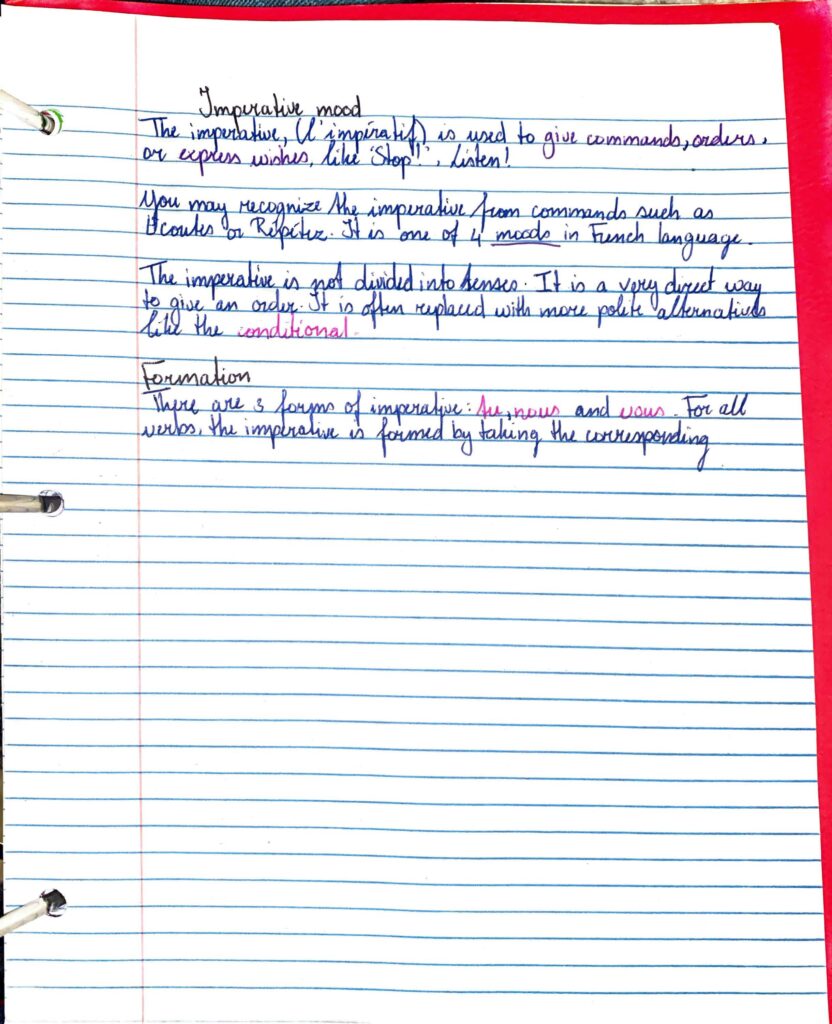 Imperative mood
The imperative, (l'impératif) is used to give commands, orders,
or express wishes, like 'Stop!!', Listen!
You may recognize the imperative from commands such as
Écoutes or Répétez. It is one of 4 moods in French language.
The imperative is not divided into tenses. It is a very direct way
to give an order. It is often replaced with more polite alternatives
like the conditional.
Formation
There are 3 forms of imperative: tu, nous and vous. For all
verbs, the imperative is formed by taking the corresponding